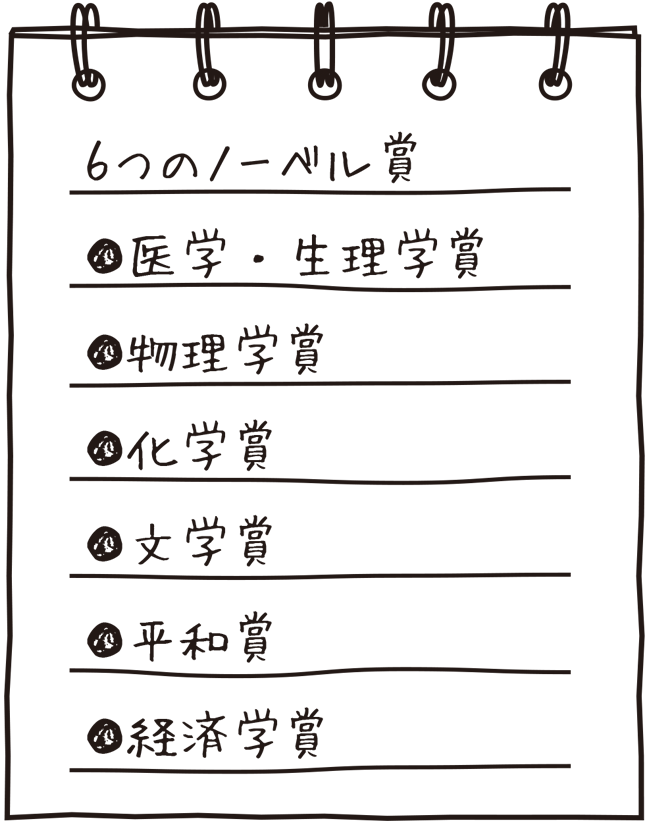 6つのノーベル賞
●医学・生理学賞
●物理学賞
●化学賞
●文学賞
●平和賞
●経済学賞